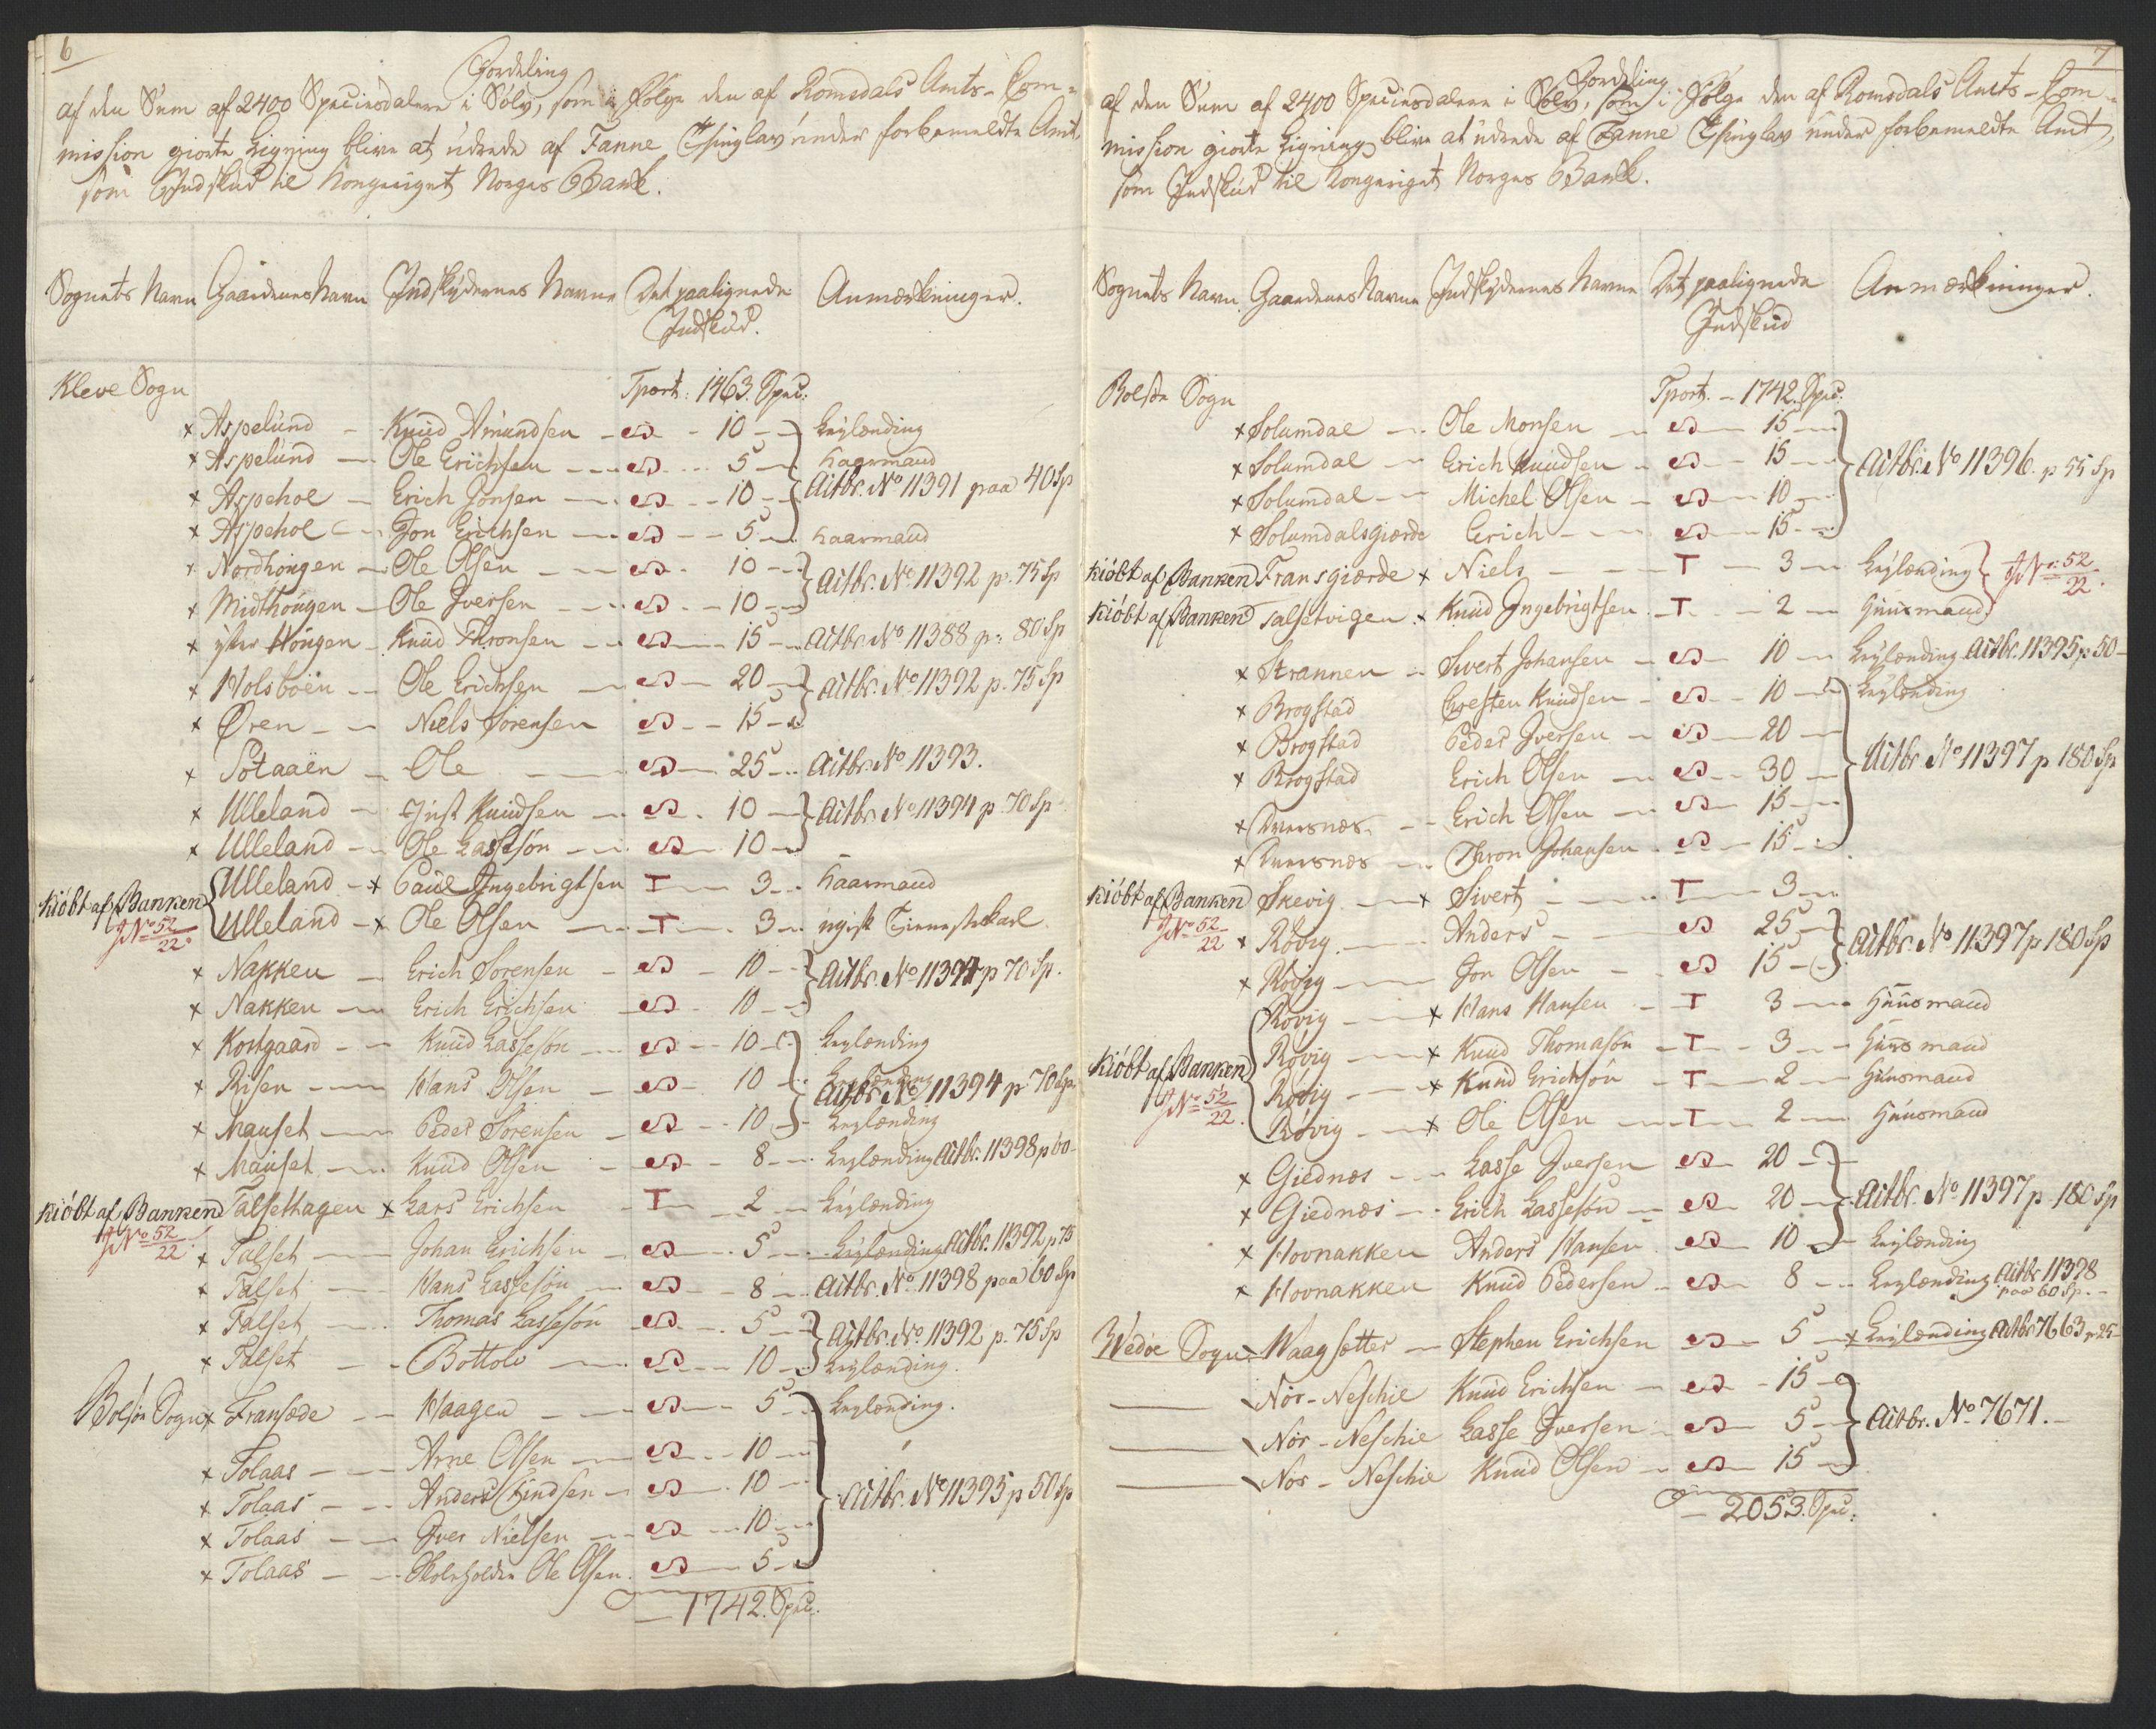 6
Fordeling
af den Sum af 2400 Speciesdalere i Sölv, som i Følge den af Romsdals Amts-Com-
mission giorte Ligning blive at udrede af Fanne Thinglav under forbemeldte Amt,
som Indskud til Kongeriget Norges Bank.
Sognets Navn Gaardenes Navn Indskydernes Navne Det paalignede Indskud. Anmærkninger.
Kleve Sogn Tport: 1463. Spec:
x Aspelund - Knud Amundsen - S - 10 - Leylænding
x Aspelund - Ole Erichsen - S - 5 - Kaarmand
x Aspehol - Erich Jonsen - S - 10 - Qitbr. No 11391 paa 40 Sp
x Aspehol - Jon Erichsen - S - 5 - Kaarmand
x Nordhougen - Ole Olsen - S - 10 - Qitbr. No 11392 p. 75 Sp
x Midthougen - Ole Iversen - S - 10
x yster Hougen - Knud Thronsen - S - 15 - Qitbr. No 11388 p. 80 Sp
x Holsboen - Ole Erichsen - S - 20 - Qitbr. No 11392 p. 75 Sp
x Øren - Niels Sorensen S - 15
x Sotaaen - Ole - S - 25 - Qitbr. No 11393.
x Ulleland - Just Knudsen - S - 10 - Qitbr. No 11394 p. 70 Sp
x Ulleland - Ole Lassesön - S - 10
Kiöbt af Banken Ulleland - x Paul Ingebrigtsen T - 3 - Kaarmand
JNo 52/22 Ulleland - x Ole Olsen - T - 3 - ugift Tienestekarl
x Nakken - Erich Sorensen - S - 10 - Qitbr. No 11394 p 70 Sp.
x Nakken - Erich Erichsen - S - 10
x Kortgaard - Knud Lassesön - S - 10 - Leylænding
x Risen - Hans Olsen - S - 10 - Leylænding
Qitbr. No 11394 p. 70 Sp.
x Mauset - Peder Sorensen - S - 10 - Leylænding
x Mauset - Knud Olsen - S - 8 - Leylænding Qitbr. 11398 p 60
Kiöbt af Banken Talsethagen x Lars Erichsen - T - 2 - Leylænding
JNo 52/22 x Talset - Johan Erichsen - S - 5 - Leylænding Qitbr. 11392 p 75
x Talset - Hans Lassesön - S - 8 - Qitbr. No 11398 paa 60 Sp
x Talset - Thomas Lassesön - S - 5 - Qitbr. No. 11392 p. 75 Sp
x Talset - Bottolv - S - 10 - Leylænding.
Bolsöe Sogn x Fransæde - Haagen - S - 5 - Leylænding.
x Tolaas - Arne Olsen - S - 10
x Tolaas - Anders Gundsen - S - 10 - Qitbr. No 11395 p 50 Sp
x Tolaas - Iver Nielsen - S - 10
x Tolaas - Skoleholder Ole Olsen. S - 5
1742. Spec.
7
Fordeling
af den Sum af 2400 Speciesdalere i Sölv, som i Følge den af Romsdals Amts-Com-
mission giorte Ligning blive at udrede af Fanne Thinglav under forbemeldte Amt,
som Indskud til Kongeriget Norges Bank.
Sognets Navn Gaardenes Navne Indskydernes Navne Det paalignede Indskud Anmærkninger.
Bolsöe Sogn Tport. - 1742. Spec.
x Solumdal - Ole Monsen - S - 15
x Solumdal - Erich Knudsen - S - 15 - Qitbr. No 11396. p 55 Sp
x Solumdal - Michel Olsen - S - 10
x Solumdalsgiærde Erich - S - 15
Kiöbt af Banken Fransgiærde x Niels - T - 3 - Leylænding JNo: 52/22.
Kiöbt af Banken Talsetvigen x Knud Ingebrigtsen - T - 2 - Huusmand
x Strannen - Sivert Johansen - S - 10 - Leylænding Qitbr. 11395 p 50
x Brogstad Christen Knudsen - S - 10 - Leylænding
x Brogstad Peder Iversen - S - 20
x Brogstad Erich Olsen - S - 30 - Qitbr No 11397 p 180 Sp
x Tversnæs - Erich Olsen - S - 15
x Tversnæs - Thron Johansen - S - 15
Kiöbt af Banken Skevig - x Sivert - T - 3
JNo 52/22 x Rövig - Anders - S 25 - Qitbr. No 11397 p 180 Sp
x Rövig - Jon Olsen - S 15
Rövig - x Hans Hansen - T 3 - Huusmand
Kiöbt af Banken Rövig - x Knud Thomasön - T - 3 - Huusmand
JNo 52/22. Rövig - x Knud Erichsön - T - 2 - Huusmand
Rövig - x Ole Olsen - T - 2 - Huusmand
x Giednæs - Lasse Iversen S - 20
x Giednæs - Erich Lassesön - S - 20 - Qitbr. No. 11397 p 180 Sp
x Hovnakken Anders Hansen S - 10 - Leylænding
x Hovnakken Knud Pedersen - S - 8 - Leylænding Qitbr 11398 paa 60 Sp.
Wedöe Sogn. Waagsetter - Stephen Erichsen S - 5 - x Leylænding Qitbr 7663 p 25
Nör-Neschie Knud Erichsen - S - 15
Nör-Neschie Lasse Iversen - S - 5 - Qitbr. No. 7671.
Nör-Neschie Knud Olsen - S - 15
2053. Spec.